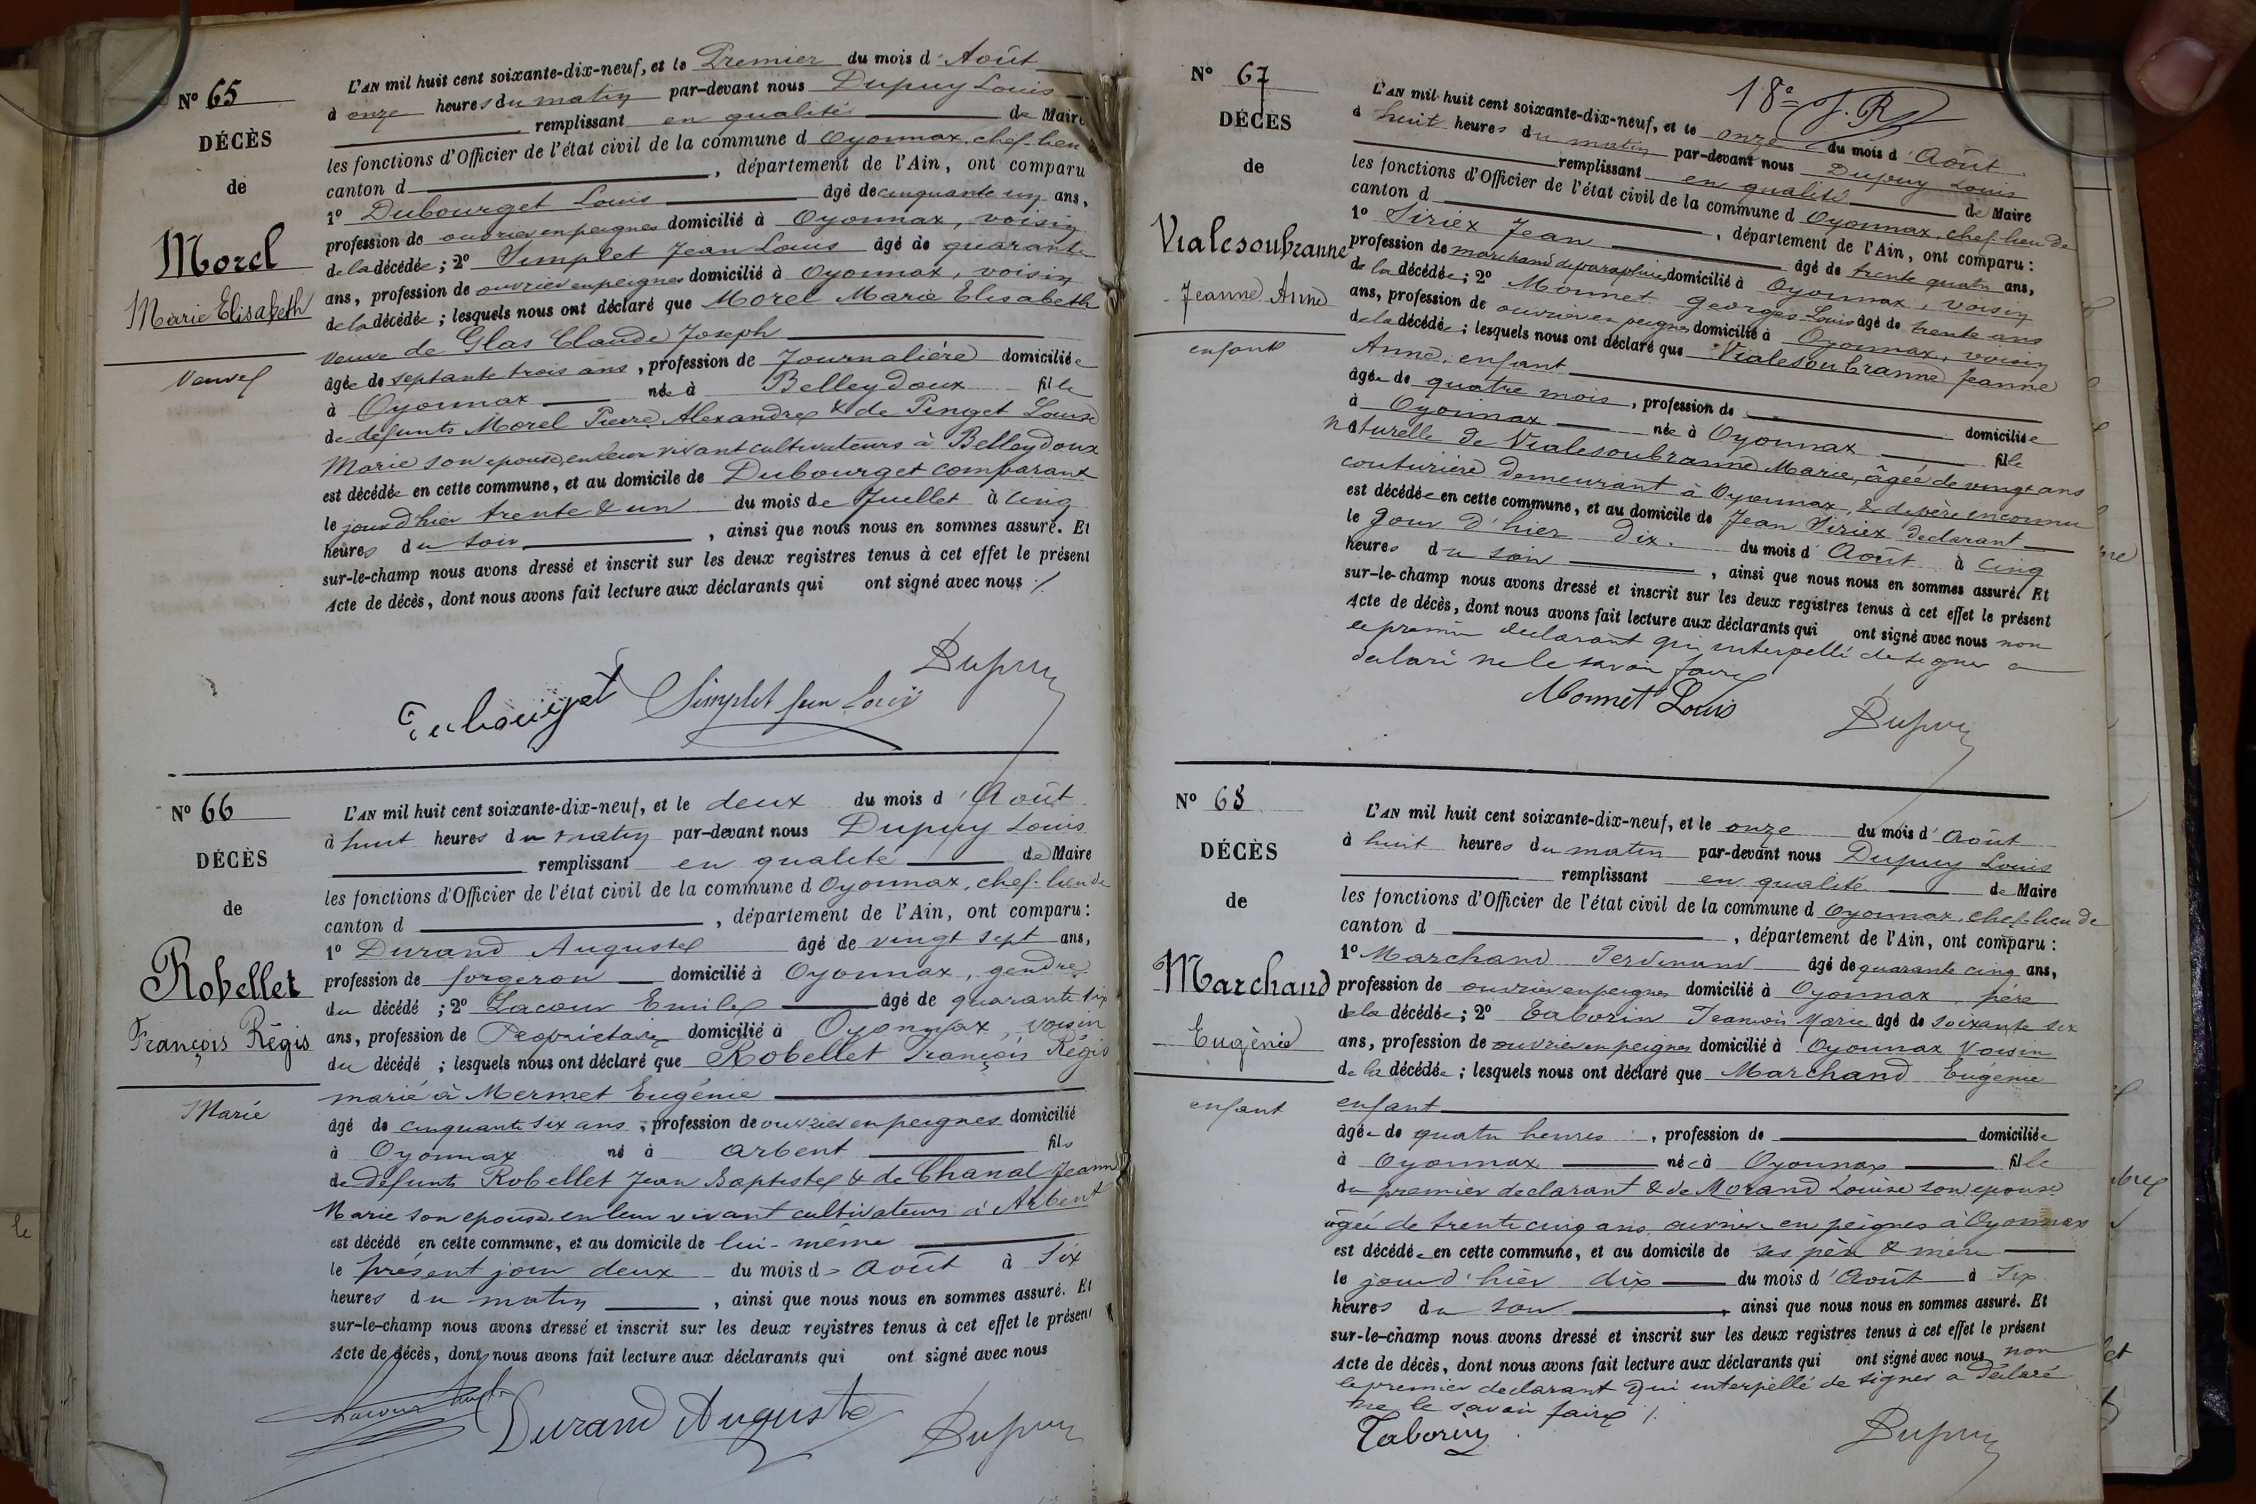 N° 65
DÉCÈS
de
Morel
Marie Elisabeth
Veuve
L'AN mil huit cent soixante-dix-neuf, et le Premier du mois d'Août
à onze heures du matin par-devant nous Dupuy Louis
remplissant en qualité de Maire
les fonctions d'Officier de l'état civil de la commune d Oyonnax, chef-lieu
canton d , département de l'Ain, ont comparu
1° Dubourget Louis âgé de cinquante un ans,
profession de ouvrier en peignes domicilié à Oyonnax, voisin
de la décédée ; 2° Simplet Jean Louis âgé de quarante
ans, profession de ouvrier en peignes domicilié à Oyonnax, voisin
de la décédée ; lesquels nous ont déclaré que Morel Marie Elisabeth
veuve de Glas Claude Joseph
âgée de septante trois ans , profession de Journalière domiciliée
à Oyonnax née à Belleydoux fille
de defunts Morel Pierre Alexandre & de Pinget Louise
Marie son epouse, en leur vivant cultivateurs à Belleydoux
est décédée en cette commune, et au domicile de Dubourget comparant
le jour d'hier trente & un du mois de Juillet à cinq
heures du soir , ainsi que nous nous en sommes assuré. Et
sur-le-champ nous avons dressé et inscrit sur les deux registres tenus à cet effet le présent
Acte de décès, dont nous avons fait lecture aux déclarants qui ont signé avec nous ./.
Dubourget Simplet Jean Louis Dupuy
N° 66
DÉCÈS
de
Robellet
François Régis
Marié
L'AN mil huit cent soixante-dix-neuf, et le deux du mois d'Août
à huit heures du matin par-devant nous Dupuy Louis
remplissant en qualité de Maire
les fonctions d'Officier de l'état civil de la commune d Oyonnax, chef-lieu de
canton d , département de l'Ain, ont comparu :
1° Durand Auguste âgé de vingt sept ans,
profession de forgeron domicilié à Oyonnax, gendre
du décédé ; 2° Lacour Emile âgé de quarante six
ans, profession de Propriétaire domicilié à Oyonnax, voisin
du décédé ; lesquels nous ont déclaré que Robellet François Régis
marié à Mermet Eugénie
âgé de cinquante six ans , profession de ouvrier en peignes domicilié
à Oyonnax né à Arbent fils
de defunts Robellet Jean Baptiste & de Chanal Jeanne
Marie son epouse en leur vivant cultivateurs à Arbent
est décédé en cette commune, et au domicile de lui-même
le présent jour deux du mois d'Août à Six
heures du matin , ainsi que nous nous en sommes assuré. Et
sur-le-champ nous avons dressé et inscrit sur les deux registres tenus à cet effet le présent
Acte de décès, dont nous avons fait lecture aux déclarants qui ont signé avec nous
Durand Auguste Dupuy
18e J. R
N° 67
DÉCÈS
de
Vialesoubranne
Jeanne Anne
enfant
L'AN mil huit cent soixante-dix-neuf, et le onze du mois d'Août
à huit heures du matin par-devant nous Dupuy Louis
remplissant en qualité de Maire
les fonctions d'Officier de l'état civil de la commune d Oyonnax, chef-lieu de
canton d , département de l'Ain, ont comparu :
1° Siriex Jean âgé de trente quatre ans,
profession de marchand de parapluies domicilié à Oyonnax, voisin
de la décédée ; 2° Monnet Georges Louis âgé de trente ans
ans, profession de ouvrier en peignes domicilié à Oyonnax, voisin
de la décédée ; lesquels nous ont déclaré que Vialesoubranne Jeanne
Anne, enfant
âgée de quatre mois , profession de domiciliée
à Oyonnax née à Oyonnax fille
naturelle de Vialesoubranne Marie, âgée de vingt ans
couturière demeurant à Oyonnax, & de père inconnu
est décédée en cette commune, et au domicile de Jean Siriex declarant
le jour d'hier dix du mois d'Août à cinq
heures du soir , ainsi que nous nous en sommes assuré. Et
sur-le-champ nous avons dressé et inscrit sur les deux registres tenus à cet effet le présent
Acte de décès, dont nous avons fait lecture aux déclarants qui ont signé avec nous non
le premier declarant qui interpellé de signer a
declaré ne le savoir faire
Monnet Louis Dupuy
N° 68
DÉCÈS
de
Marchand
Eugénie
enfant
L'AN mil huit cent soixante-dix-neuf, et le onze du mois d'Août
à huit heures du matin par-devant nous Dupuy Louis
remplissant en qualité de Maire
les fonctions d'Officier de l'état civil de la commune d Oyonnax, chef-lieu de
canton d , département de l'Ain, ont comparu :
1° Marchand Ferdinand âgé de quarante cinq ans,
profession de ouvrier en peignes domicilié à Oyonnax, père
de la décédée ; 2° Taborin François Marie âgé de soixante six
ans, profession de ouvrier en peignes domicilié à Oyonnax voisin
de la décédée ; lesquels nous ont déclaré que Marchand Eugénie
enfant
âgée de quatre heures , profession de domiciliée
à Oyonnax née à Oyonnax fille
du premier declarant & de Morand Louise son epouse
âgée de trente cinq ans ouvrière en peignes à Oyonnax
est décédée en cette commune, et au domicile de ses père & mère
le jour d'hier dix du mois d'Août à six
heures du soir , ainsi que nous nous en sommes assuré. Et
sur-le-champ nous avons dressé et inscrit sur les deux registres tenus à cet effet le présent
Acte de décès, dont nous avons fait lecture aux déclarants qui ont signé avec nous non
le premier declarant qui interpellé de signer a déclaré
ne le savoir faire ./.
Taborin Dupuy